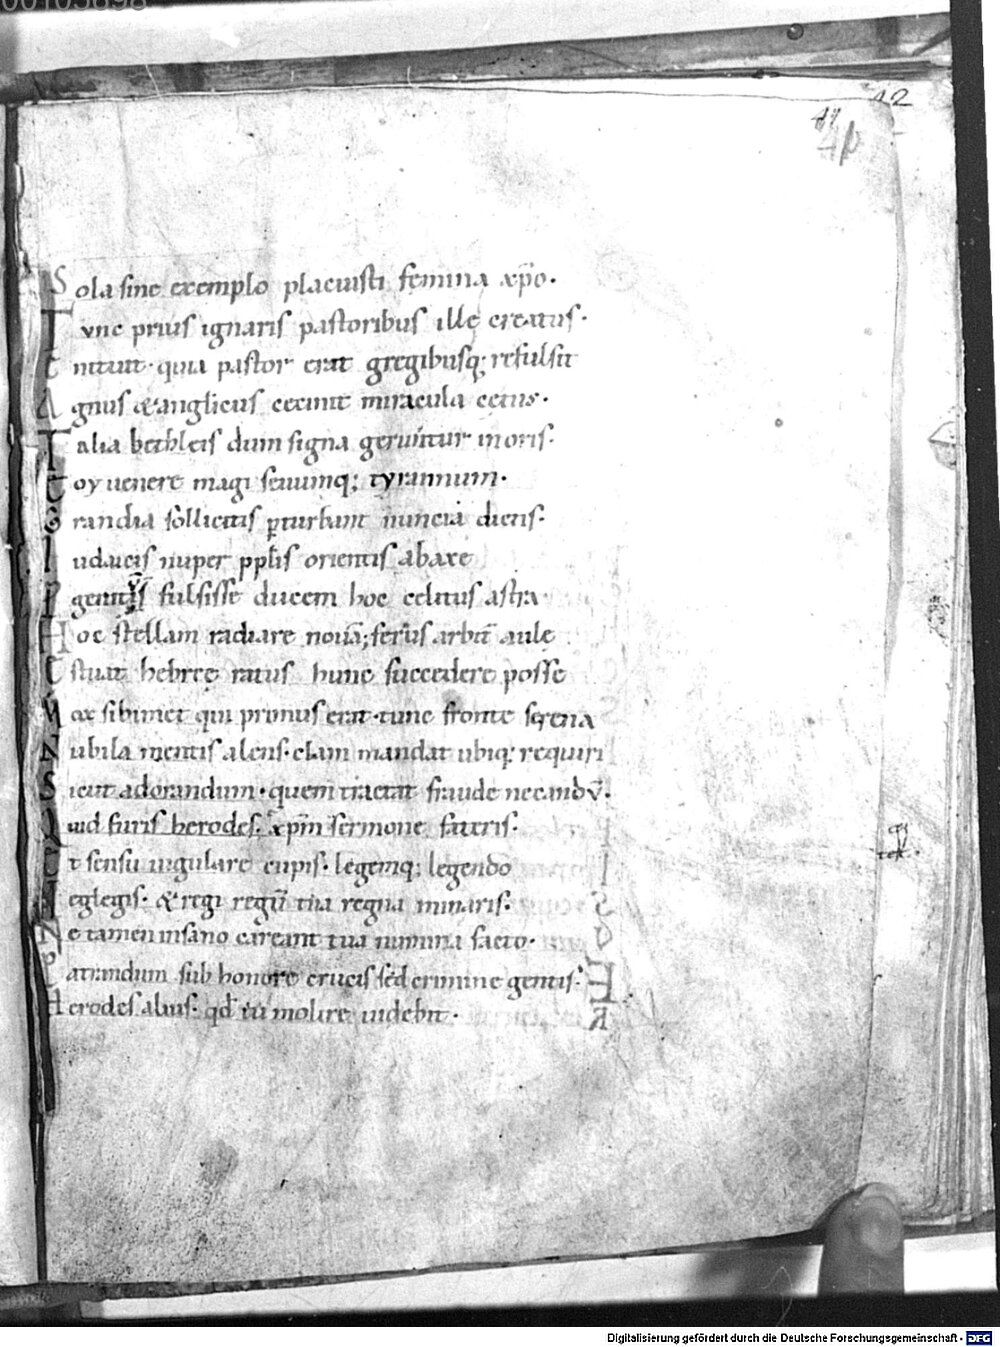 00103898
42
41
Sola sine exemplo placuisti femina xp̄o.
Tunc prius ignaris pastoribus ille creatus.
Enituit. quia pastor erat gregibusq; refulsit
Agnus & anglicus cecinit miracula cetus.
Talia bethleis dum signa geruntur in oris.
Eoy uenere magi seuumq; tyrannum.
Grandia sollicitis ꝑturbant nuncia dictis.
Iudaeis nuper pplis orientis ab axe
gentis fulsisse ducem hoc celitus astra
Hoc stellam radiare nouā; ferus arbit̄ aule
Estuat hebreę ratus hunc succedere posse
Mox sibimet qui pronus erat. tunc fronte serena
Nubila mentis alens. clam mandat ubiq; requiri
Sicut adorandum. quem tractat fraude necandū.
Quid furis herodes. xp̄m sermone fateris.
Ut sensu iugulare cupis. legemq; legendo
Neglegis. & regi regū tua regna minaris.
Ne tamen insano careant tua numina facto.
Patrandum sub honore crucis sed crimine gentis.
Herodes alius. qđ tu molire uidebit.
Digitalisierung gefördert durch die Deutsche Forschungsgemeinschaft - DFG